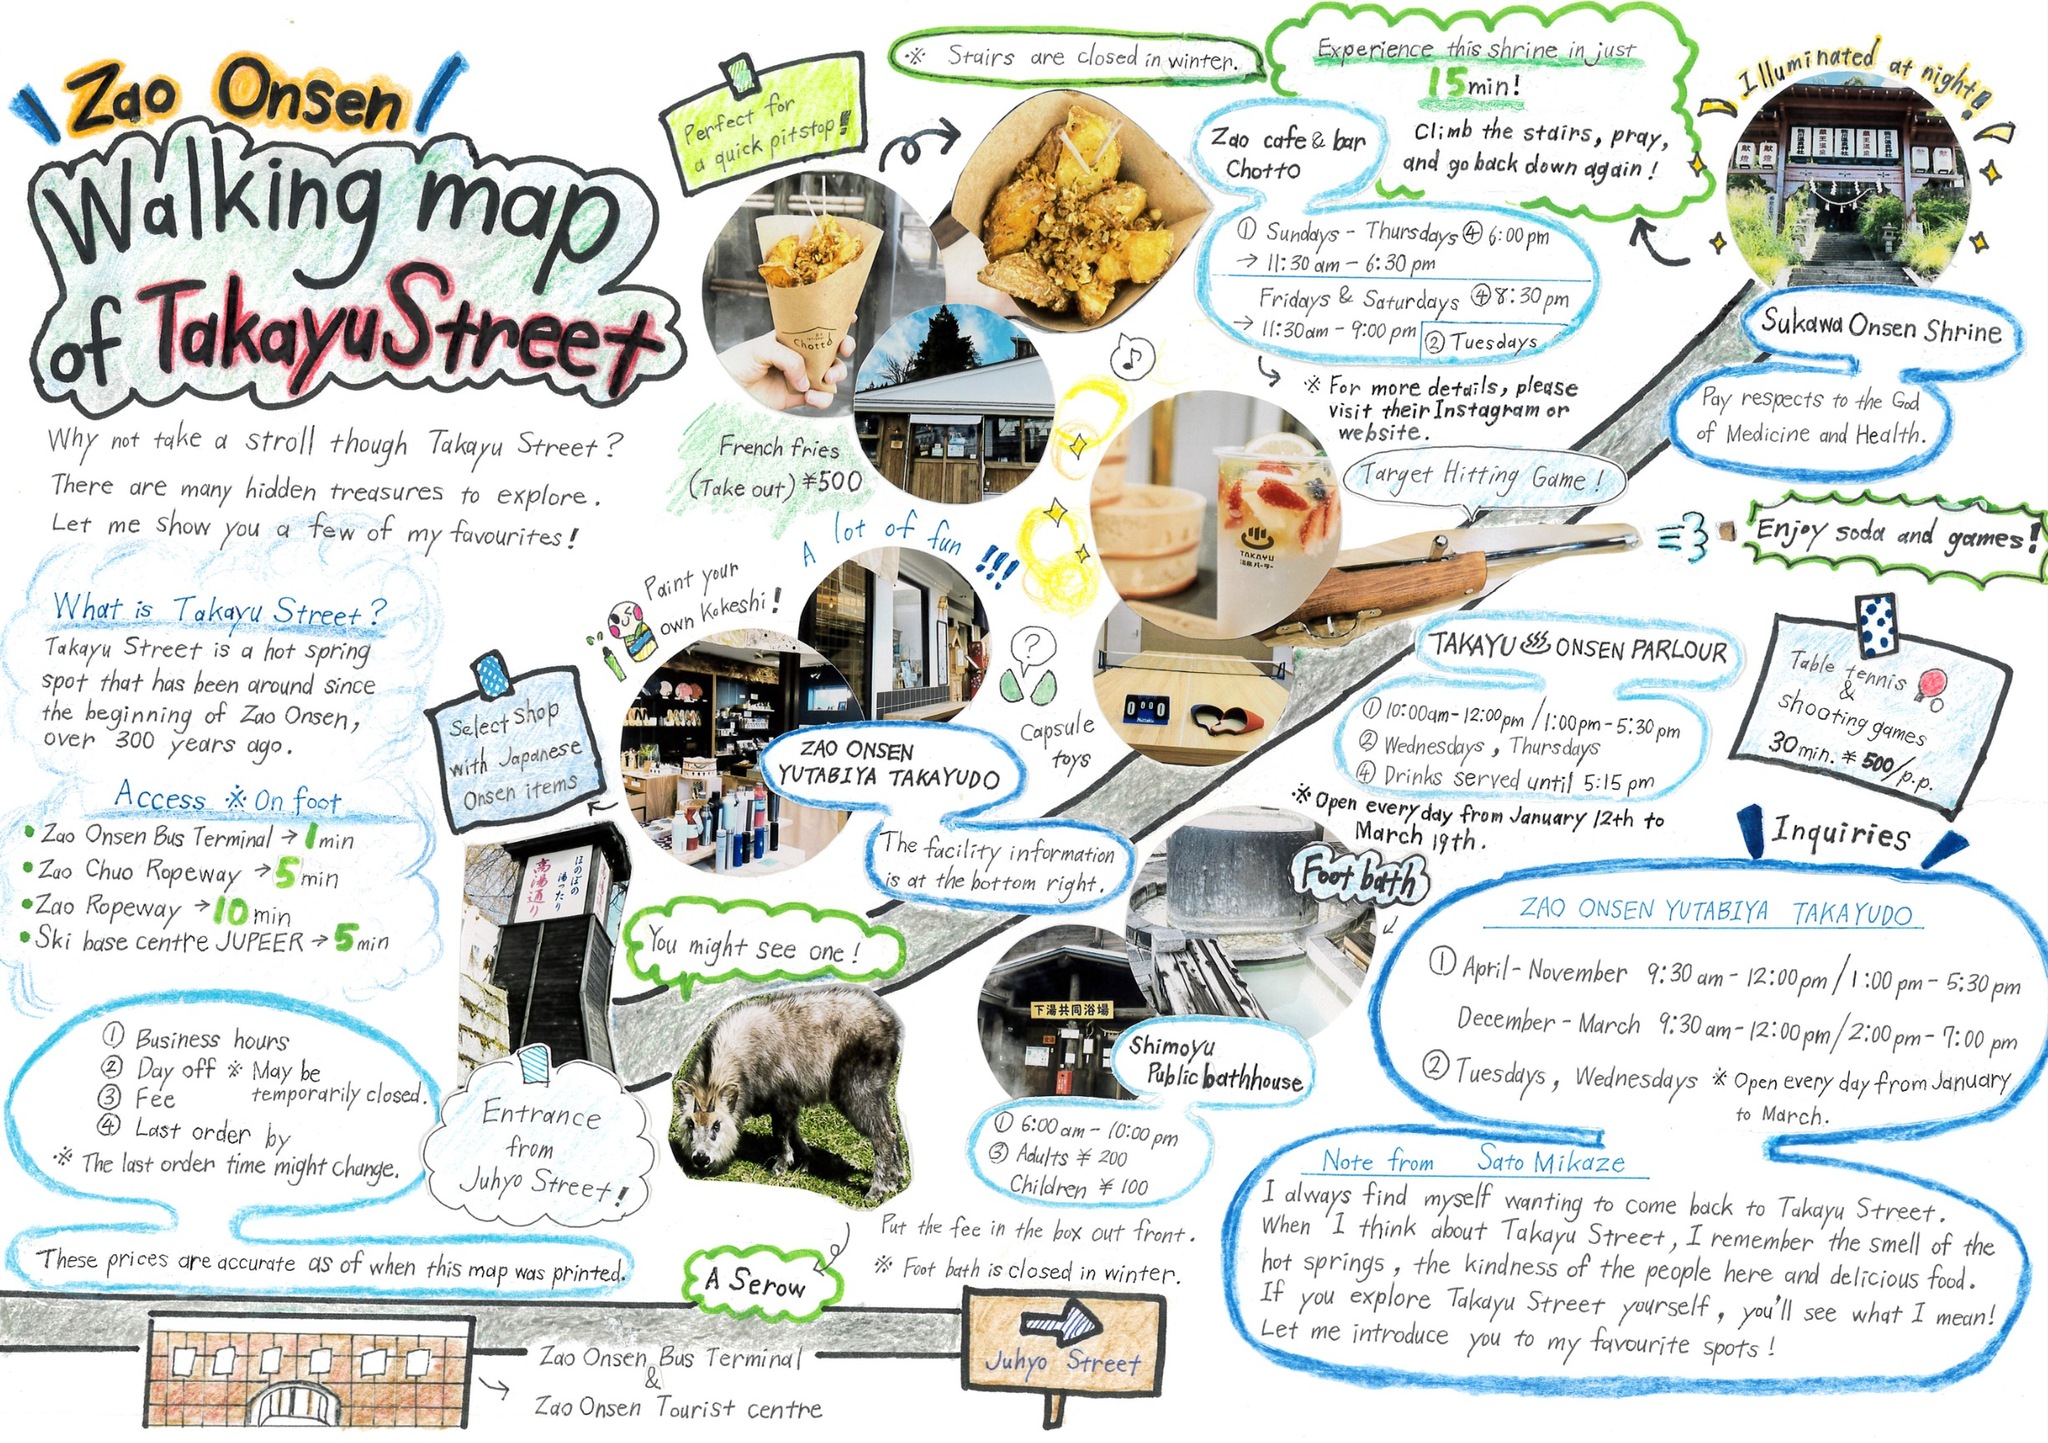 Zao Onsen
Walking map
of Takayu Street
Why not take a stroll though Takayu Street?
There are many hidden treasures to explore.
Let me show you a few of my favourites!
What is Takayu Street?
Takayu Street is a hot spring
spot that has been around since
the beginning of Zao Onsen,
over 300 years ago.
Access ※ On foot
• Zao Onsen Bus Terminal → 1 min
• Zao Chuo Ropeway → 5 min
• Zao Ropeway → 10 min
• Ski base centre JUPEER → 5 min
① Business hours
② Day off ※ May be
temporarily closed.
③ Fee
④ Last order by
※ The last order time might change.
These prices are accurate as of when this map was printed.
Zao Onsen Bus Terminal
&
Zao Onsen Tourist centre
Juhyo Street
Entrance
from
Juhyo Street!
ほのぼの
湯ったり
高湯通り
You might see one!
A Serow
Select Shop
with Japanese
Onsen items
Paint your
own Kokeshi!
A lot of fun!!!
?
Capsule
toys
ZAO ONSEN
YUTABIYA TAKAYUDO
The facility information
is at the bottom right.
Perfect for
a quick pitstop!
Chotto
French fries
(Take out) ¥500
※ Stairs are closed in winter.
Zao cafe & bar
Chotto
① Sundays - Thursdays ④ 6:00 pm
→ 11:30 am - 6:30 pm
Fridays & Saturdays ④ 8:30 pm
→ 11:30 am - 9:00 pm ② Tuesdays
※ For more details, please
visit their Instagram or
website.
Experience this shrine in just
15 min!
Climb the stairs, pray,
and go back down again!
Illuminated at night!
献燈
蔵王温泉
献燈
Sukawa Onsen Shrine
Pay respects to the God
of Medicine and Health.
Target Hitting Game!
Enjoy soda and games!
TAKAYU
温泉パーラー
TAKAYU ♨ ONSEN PARLOUR
① 10:00am - 12:00pm / 1:00pm - 5:30 pm
② Wednesdays, Thursdays
④ Drinks served until 5:15 pm
※ Open every day from January 12th to
March 19th.
Table tennis
&
shooting games
30 min. ¥ 500/p.p.
Foot bath
下湯共同浴場
Shimoyu
Public bathhouse
① 6:00 am - 10:00 pm
③ Adults ¥ 200
Children ¥ 100
Put the fee in the box out front.
※ Foot bath is closed in winter.
Inquiries
ZAO ONSEN YUTABIYA TAKAYUDO
① April - November 9:30 am - 12:00 pm / 1:00 pm - 5:30 pm
December - March 9:30 am - 12:00 pm / 2:00 pm - 7:00 pm
② Tuesdays, Wednesdays ※ Open every day from January
to March.
Note from Sato Mikaze
I always find myself wanting to come back to Takayu Street.
When I think about Takayu Street, I remember the smell of the
hot springs, the kindness of the people here and delicious food.
If you explore Takayu Street yourself, you'll see what I mean!
Let me introduce you to my favourite spots!